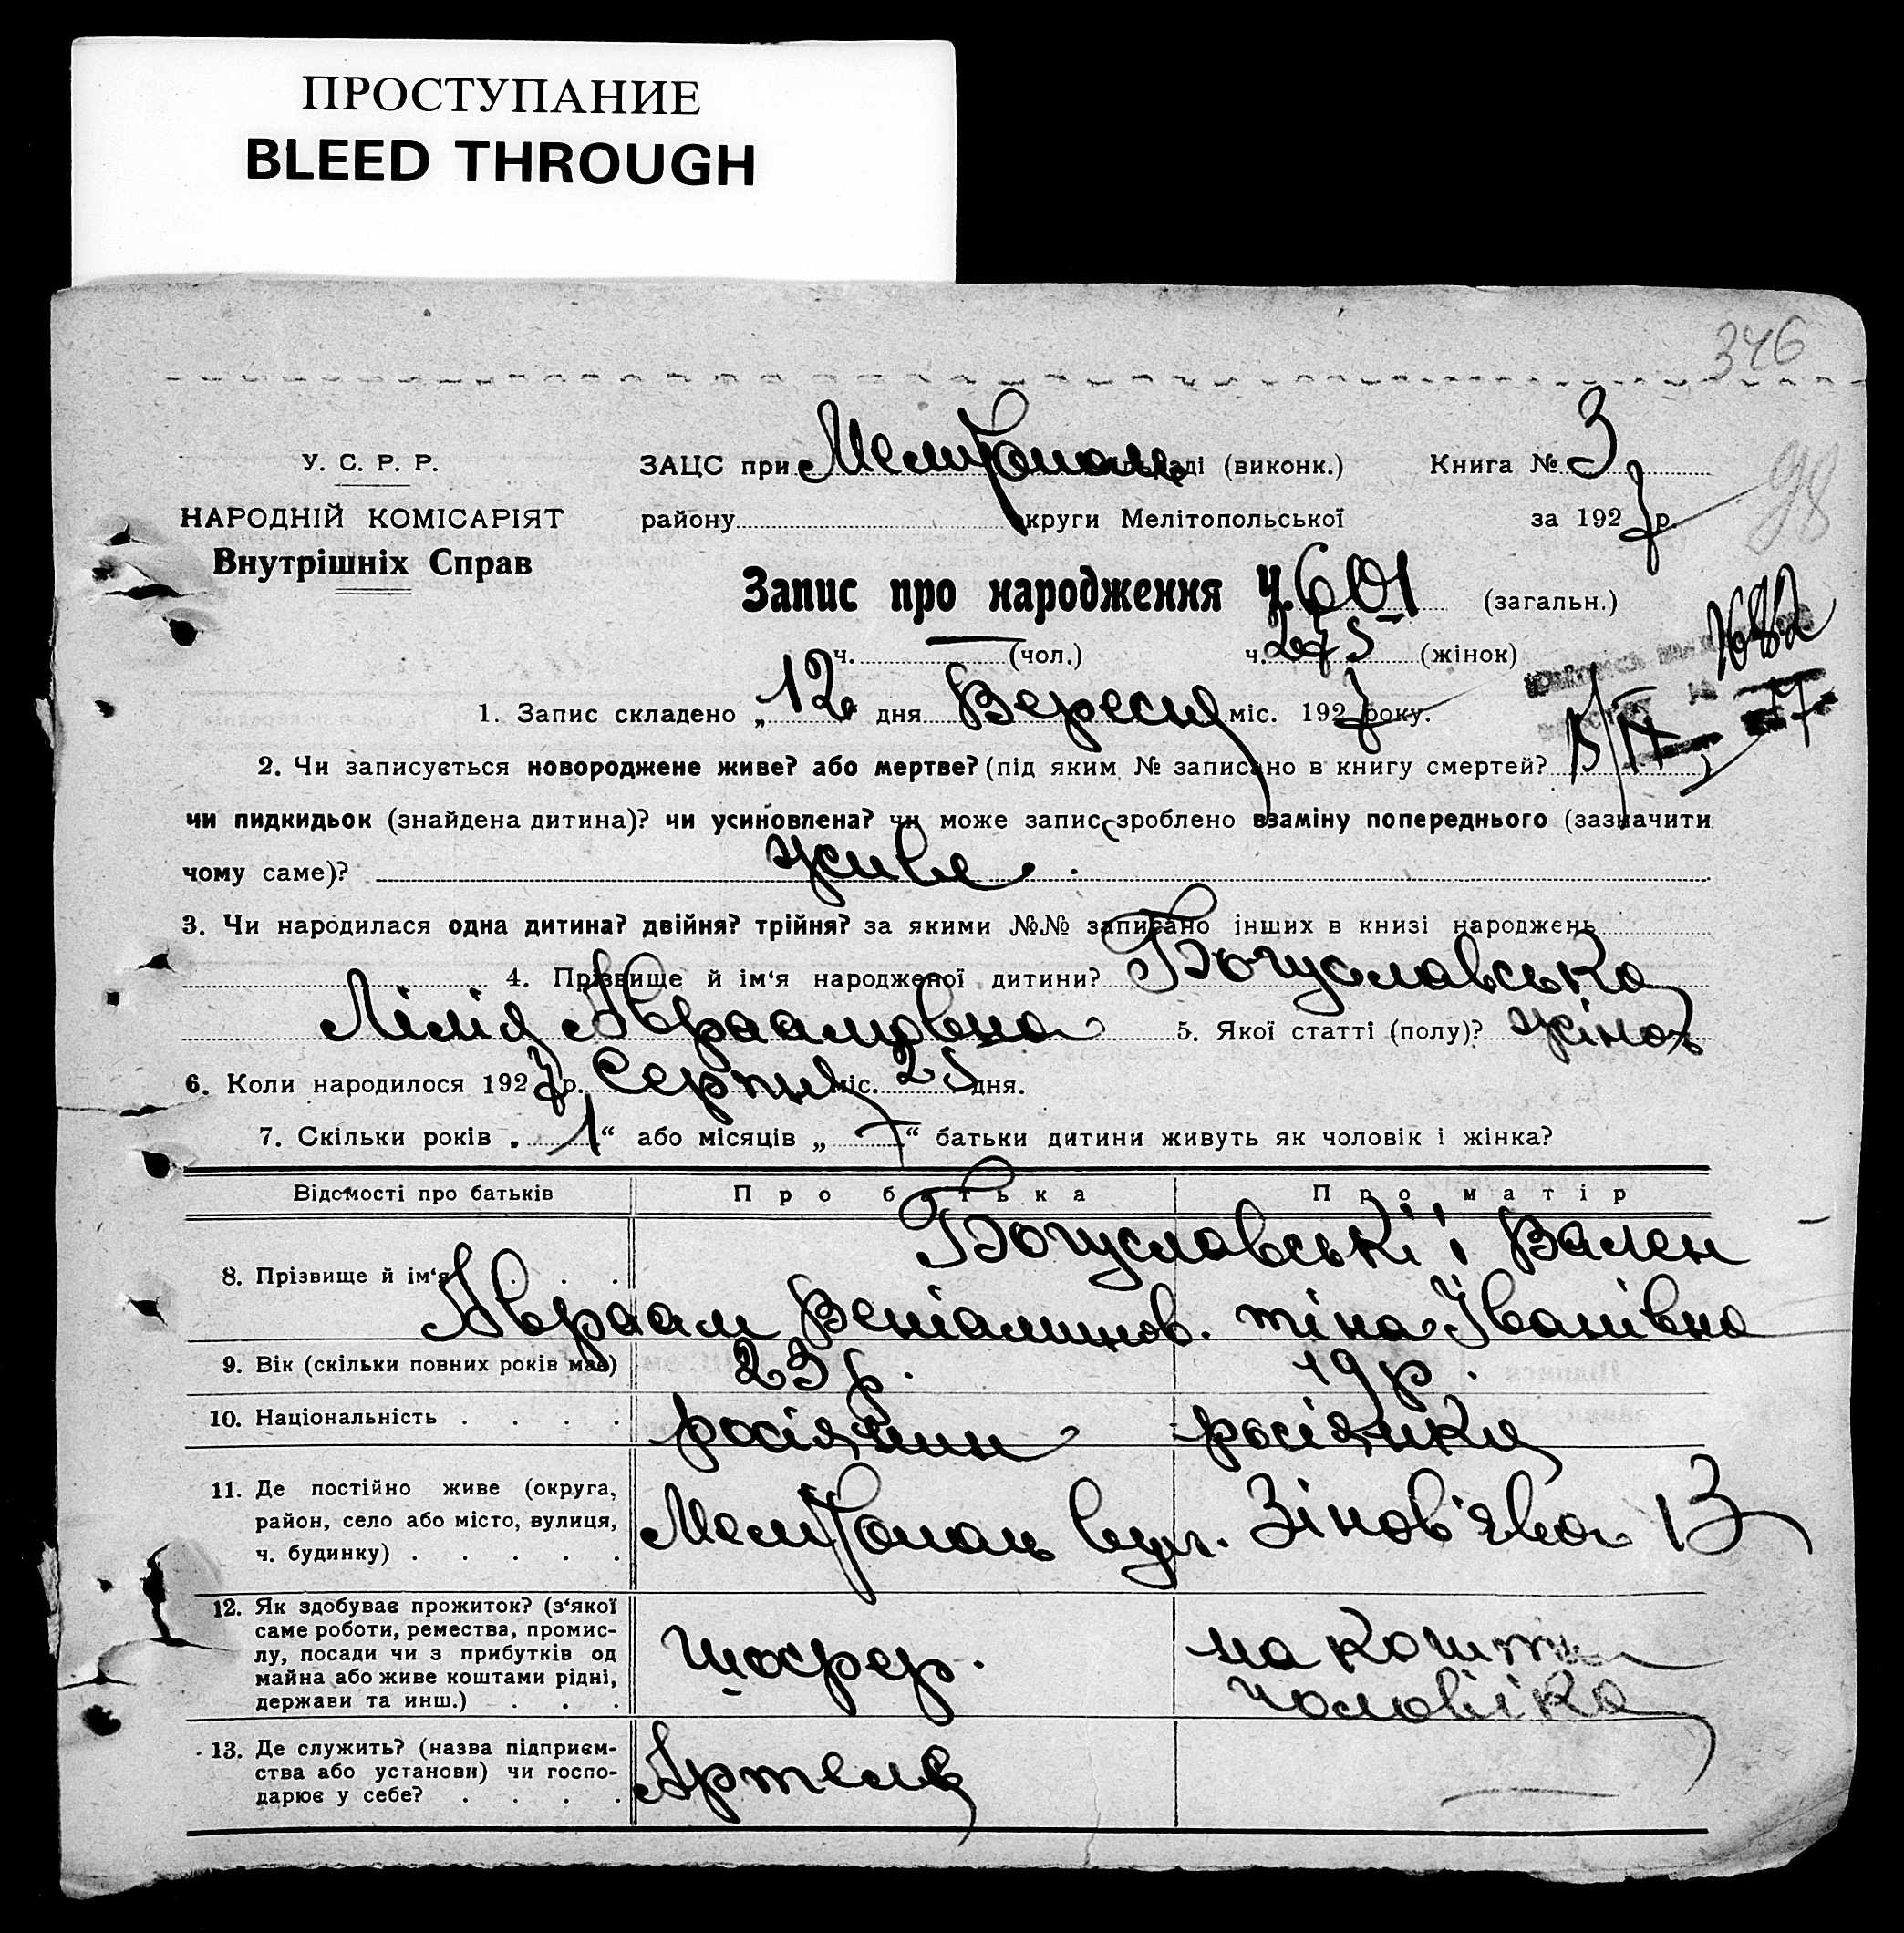 ПРОСТУПАНИЕ
BLEED THROUGH
346
98
У. С. Р. Р.
НАРОДНІЙ КОМІСАРІЯТ
Внутрішніх Справ
ЗАЦС при Мелитополь ді (виконк.) Книга № 3
району округи Мелітопольської за 1927 р.
Запис про народження Ч. 601 (загальн.)
ч. — (чол.) ч. 275 (жінок)
1. Запис складено „12 дня Вересня міс. 1927 року.
2. Чи записується новороджене живе? або мертве? (під яким № записано в книгу смертей?
чи пидкидьок (знайдена дитина)? чи усиновлена? чи може запис зроблено взаміну попереднього (зазначити
чому саме)? живе.
3. Чи народилася одна дитина? двійня? трійня? за якими №№ записано інших в книзі народжень
4. Прізвище й ім‘я народженої дитини? Богуславська
Лілія Авраамовна 5. Якої статті (полу)? жіноч
6. Коли народилося 1927 р. Серпня міс. 25 дня.
7. Скільки років „ 1 “ або місяців „ — “ батьки дитини живуть як чоловік і жінка?
Відомості про батьків Про батька Про матір
8. Прізвище й ім‘я Богуславські і Вален
Авраам Веніаминов. тіна Іванівна
9. Вік (скільки повних років має) 23 р. 19 р.
10. Національність . . . . росіянин росіянка
11. Де постійно живе (округа,
район, село або місто, вулиця,
ч. будинку) . . . . . Мелитополь вул. Зінов'єва 13
12. Як здобуває прожиток? (з‘якої
саме роботи, ремества, промис-
лу, посади чи з прибутків од
майна або живе коштами рідні,
держави та инш.) . . . шофер. на кошти
чоловіка
13. Де служить? (назва підприєм-
ства або установи) чи госпо-
дарює у себе? . . . . Артель